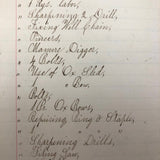 " 1 Dys. Labor,
" Sharpening 2 Drill,
" Fixing Well Chain,
" Pincers,
" Manure Digger,
" 4 Bolts,
" Use of Ox Sled,
" " " Bow,
" Bolts,
" 1 Pr Ox Bows,
" Repairing Ring & Staple,
" "
" Sharpening Drills,
" Filing Saw,